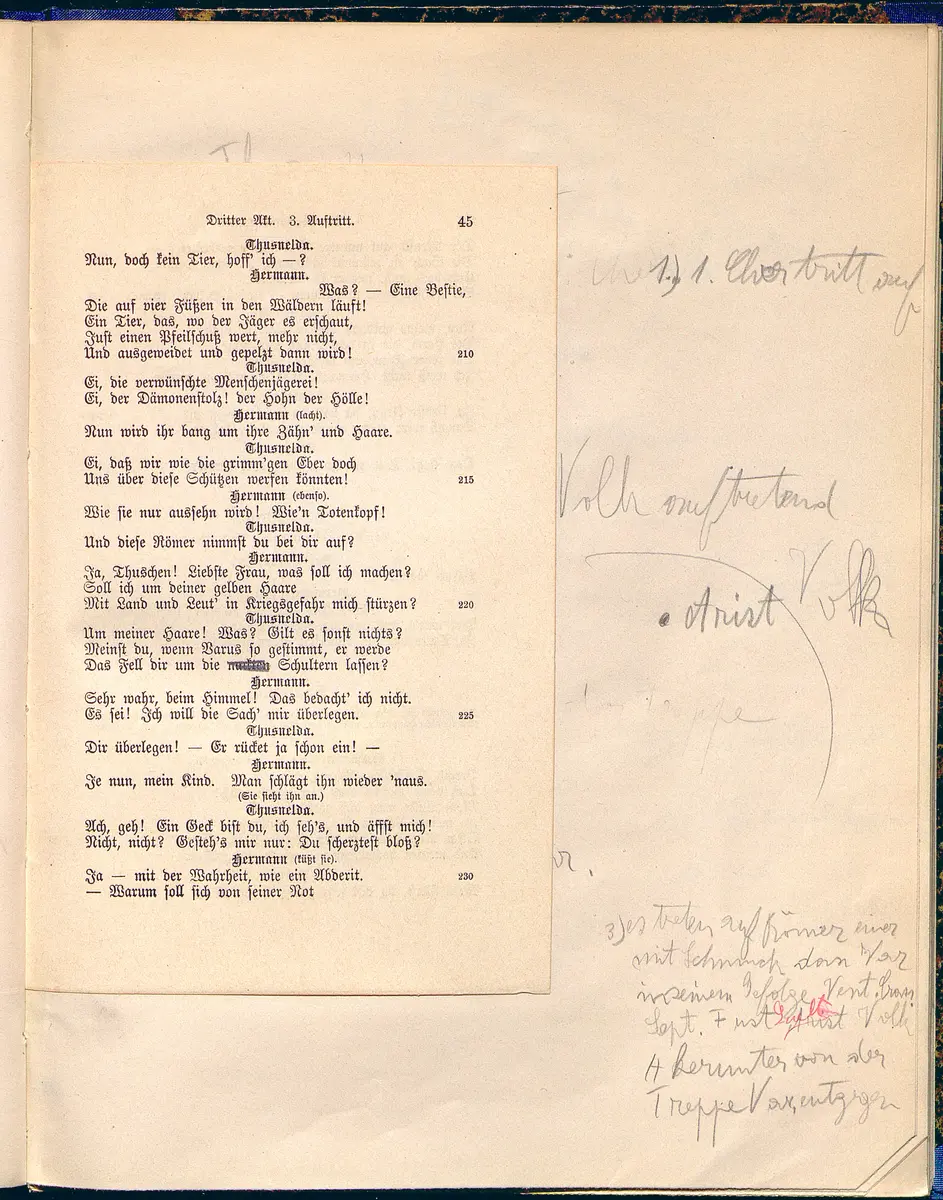 Dritter Akt. 3. Auftritt. 45
Thusnelda.
Nun, doch kein Tier, hoff' ich —?
Hermann.
Was? — Eine Bestie,
Die auf vier Füßen in den Wäldern läuft!
Ein Tier, das, wo der Jäger es erschaut,
Just einen Pfeilschuß wert, mehr nicht,
Und ausgeweidet und gepelzt dann wird! 210
Thusnelda.
Ei, die verwünschte Menschenjägerei!
Ei, der Dämonenstolz! der Hohn der Hölle!
Hermann (lacht).
Nun wird ihr bang um ihre Zähn' und Haare.
Thusnelda.
Ei, daß wir wie die grimm'gen Eber doch
Uns über diese Schützen werfen könnten! 215
Hermann (ebenso).
Wie sie nur aussehn wird! Wie'n Totenkopf!
Thusnelda.
Und diese Römer nimmst du bei dir auf?
Hermann.
Ja, Thuschen! Liebste Frau, was soll ich machen?
Soll ich um deiner gelben Haare
Mit Land und Leut' in Kriegsgefahr mich stürzen? 220
Thusnelda.
Um meiner Haare! Was? Gilt es sonst nichts?
Meinst du, wenn Varus so gestimmt, er werde
Das Fell dir um die Schultern lassen?
Hermann.
Sehr wahr, beim Himmel! Das bedacht' ich nicht.
Es sei! Ich will die Sach' mir überlegen. 225
Thusnelda.
Dir überlegen! — Er rücket ja schon ein! —
Hermann.
Je nun, mein Kind. Man schlägt ihn wieder 'naus.
(Sie sieht ihn an.)
Thusnelda.
Ach, geh! Ein Geck bist du, ich seh's, und äffst mich!
Nicht, nicht? Gesteh's mir nur: Du scherztest bloß?
Hermann (küßt sie).
Ja — mit der Wahrheit, wie ein Abderit. 230
— Warum soll sich von seiner Not
1.) 1. Cher tritt auf
Volk auftretend
Volk
Arist
Treppe
3) es treten auf Römer einer
mit Schmuck dan Var
in seinem Gefolge Vent. Cras
Sept. Fust Arist Volk
H herunter von der
Treppe Var, entgegen